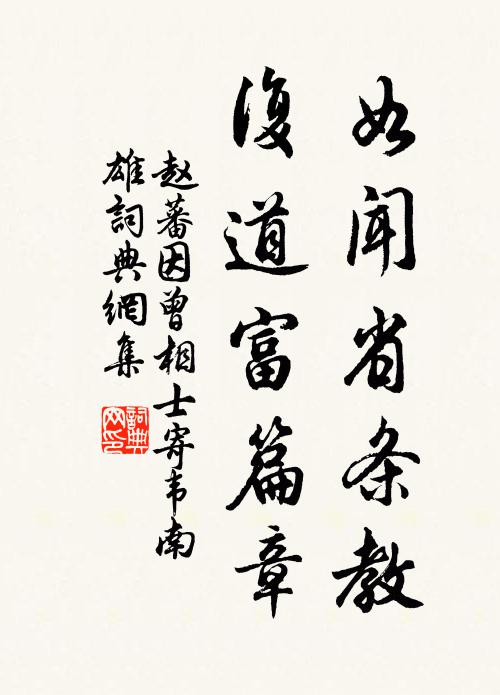 如闻省条教
復道富篇章
赵蕃因曾相士寄韦南
雄詞典網集
詞典网印